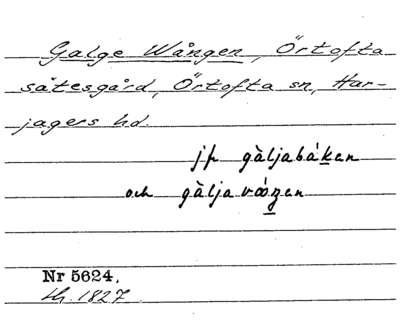 Galge Wången, Örtofta
sätesgård, Örtofta sn, Har-
jagers hd.
jfr gàljabáken
och gàlja
Nr 5624.
1827.